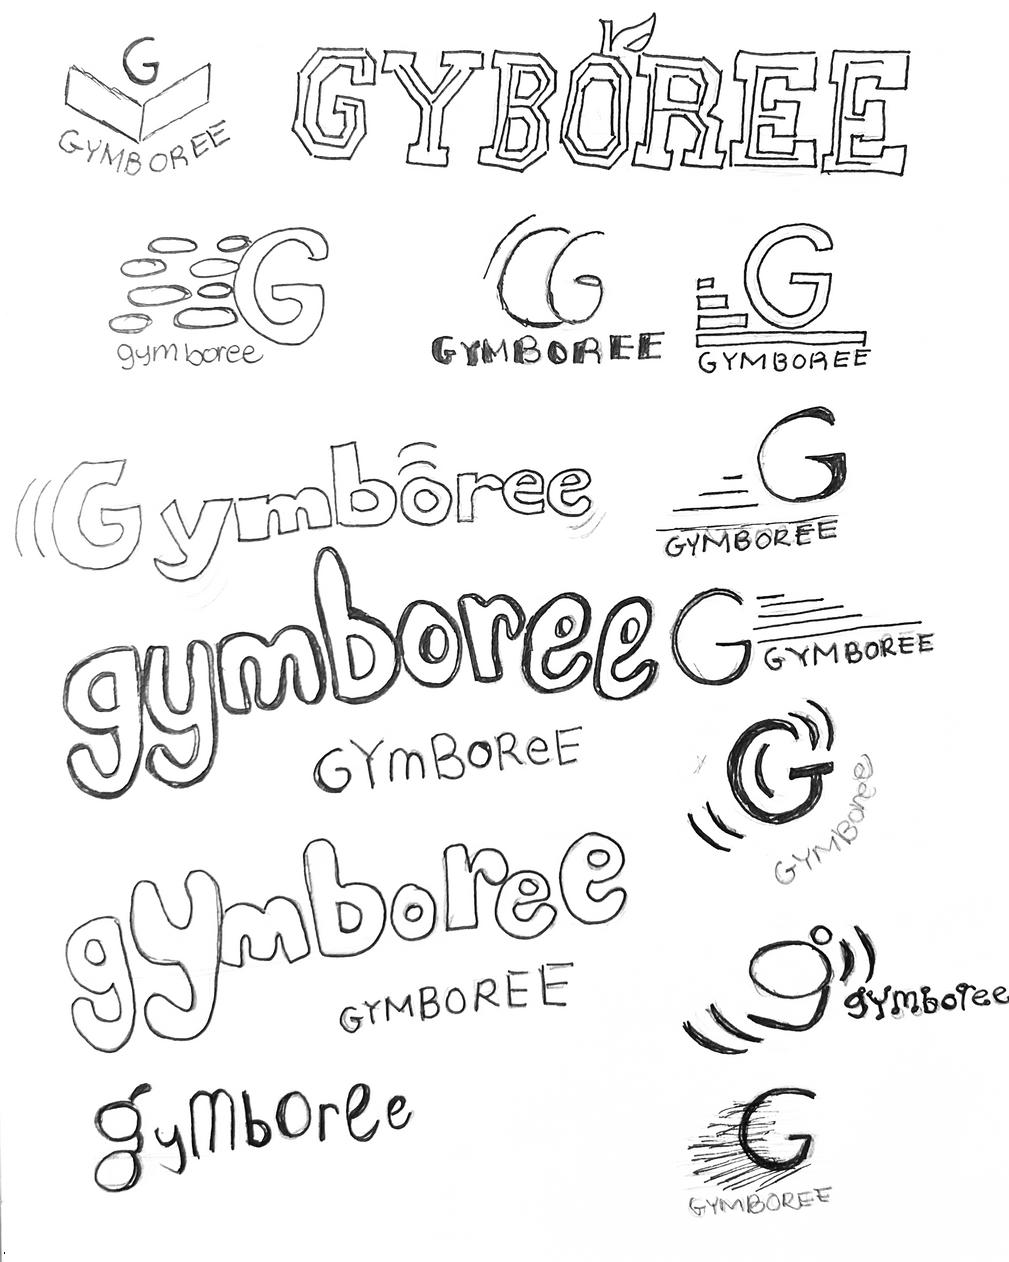 G
GYMBOREE
GYBOREE
G
gymboree
G
GYMBOREE
G
GYMBOREE
Gymboree
G
GYMBOREE
gymboree
G
GYMBOREE
GYmBOReE
G
GYMBoree
gymboree
GYMBOREE
g
gymboree
gymboree
G
GYMBOREE